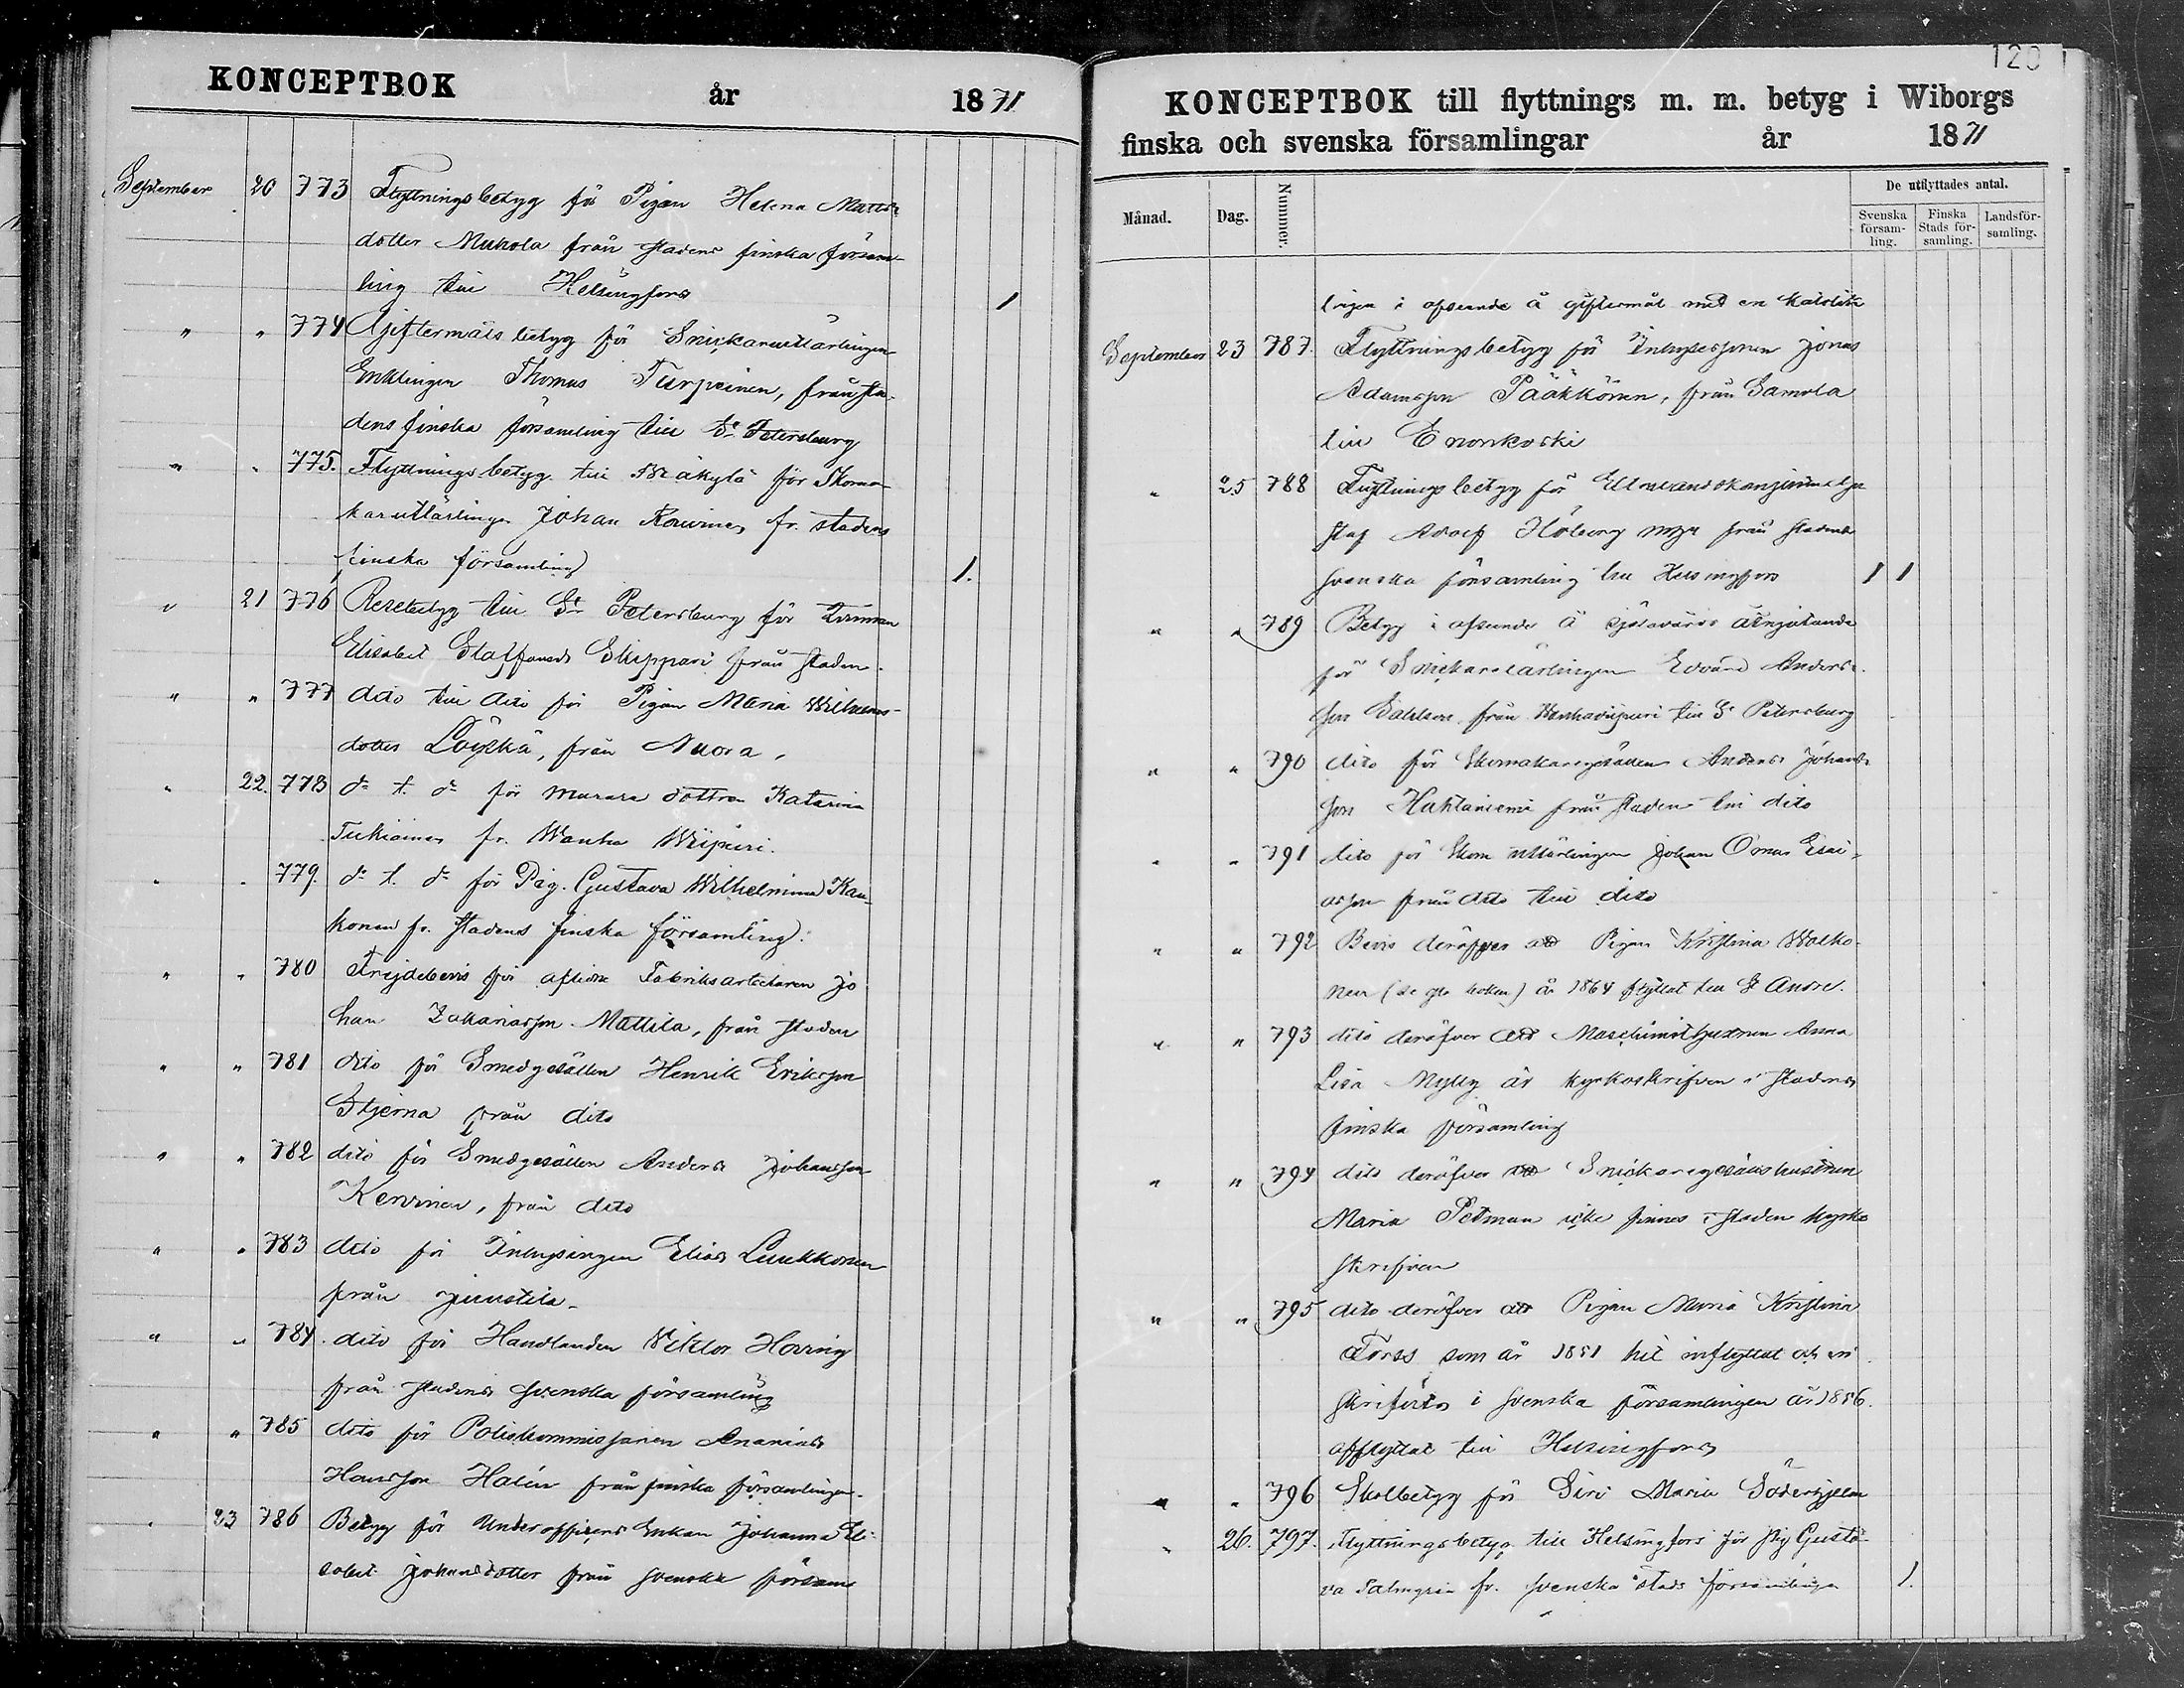 KONCEPTBOK år 1871
September 20 773 Flyttningsbetyg för Pigan Helena Matts
dotter Mukola från stadens finska försam-
ling till Helsingfors 1
" " 774 Giftermålsbetyg för Snickareutlärlingen
Enklingen Thomas Turpeinen, från sta-
dens finska församling till St Petersburg
" " 775. Flyttningsbetyg till Käkylä för Skoma
karutlärlingen Johan Rouvinen fr. stadens
finska församling 1.
" 21 776 Resebetyg till St Petersburg för
Elisabet Staffansd. Skippari från staden.
" " 777 dito till dito för Pigan Maria Wilhelms-
dotter Löyskä, från Nuora.
" 22. 778 do t. do för murare dottren Katarina
Tukiainen fr. Wanha Wiipuri.
" " 779. do t. do för Pig. Gustava Wilhelmina Kau-
konen fr. stadens finska församling.
" " 780 Frejdebevis för aflidne Fabriksarbetaren Jo
han Zakariasson Mattila, från staden
" " 781 dito för Smedgesällen Henrik Eriksson
Stjerna från dito
" " 782 dito för Smedgesällen Anders Johansson
Kervinen, från dito
" " 783 dito för Inhysingen Elias Luukkonen
från Juustila.
" " 784. dito för Handlanden Viktor Hoving
från stadens svenska församling
" " 785 dito för Poliskommissarien Ananias
Hansson Halin från finska församlingen.
" 23 786 Betyg för Underofficers Enkan Johanna Eli-
sabet Johansdotter från svenska försam
120
KONCEPTBOK till flyttnings m. m. betyg i Wiborgs
finska och svenska församlingar år 1871
Månad. Dag. Nummer. De utflyttades antal.
Svenska församling. Finska Stads församling. Landsförsamling.
lingen i afseende å giftermål med en katolik
September 23 787. Flyttningsbetyg för Inhysessonen Jonas
Adamsson Pääkkönen, från Samola
till Enonkoski
" 25 788 Flyttningsbetyg för
staf Adolf Höberg från stadens
svenska församling till Helsingfors 1 1
" " 789 Betyg i afseende å själavårds åtnjutande
för Snickarelärlingen Edvard Anders-
son Dahlson från Wanhawiipuri till St Petersburg
" " 790 dito för Skomakaregesällen Anders Johans-
son Huhtaniemi från staden till dito
" " 791 dito för Skom. utlärlingen Johan Omar Esai-
asson från dito till dito
" " 792 Bevis deröfver att Pigan Kristina Wolko-
nen (se boken) år 1864 flyttat till St Andre.
" " 793 dito deröfver att Maschinisthustrun Anna
Lisa Mylly är kyrkoskrifven i stadens
finska församling
" " 794 dito deröfver att Snickaregesällshustrun
Maria Petman icke finnes i staden kyrko
skrifven
" " 795 dito deröfver att Pigan Maria Kristina
Forss som år 1851 hit inflyttat och in
skrifvits i svenska församlingen år 1856.
afflyttat till Helsingfors
" " 796 Skolbetyg för Siri Maria Söderhjelm
" 26. 797. Flyttningsbetyg till Helsingfors för Pig Gusta
va Palmgren fr. svenska stads församlingen 1.